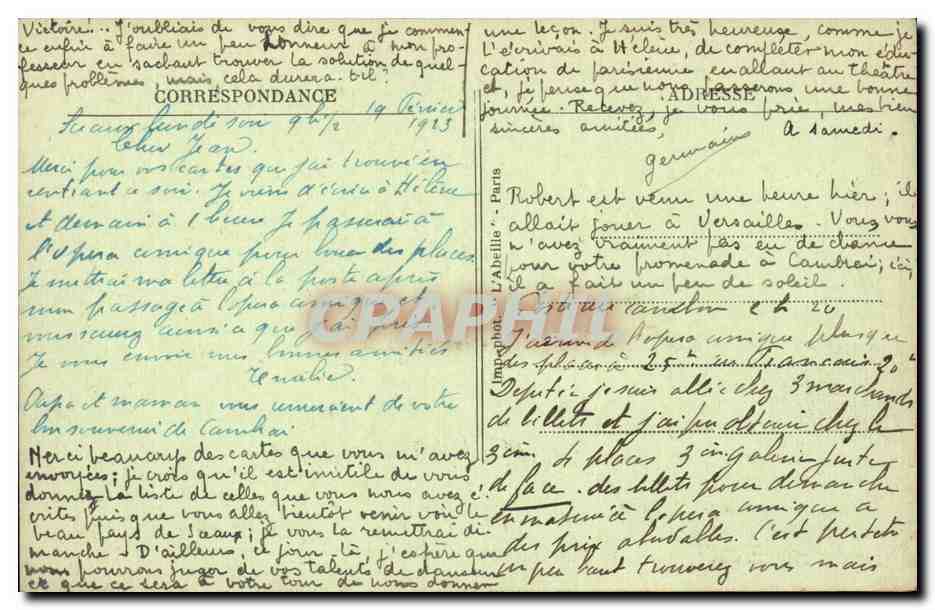 Victoire!.. J'oubliais de vous dire que je commen
ce enfin à faire un peu honneur à mon pro-
fesseur en sachant trouver la solution de quel-
ques problèmes, mais cela durera-t-il?
CORRESPONDANCE
Sceaux lundi soir 9h 1/2 19 Février
1923
Cher Jean.
Merci pour vos cartes que j'ai trouvé en
rentrant ce soir. Je viens d'écrire à Hélène
et demain à 1 heure je passerai à
l'opera comique pour louer des places
Je mettrai ma lettre à la poste après
mon passage à l'opera comique et
vous saurez ainsi ce que j'ai pris
Je vous envoie mes bonnes amitiés
Papa et maman vous remercient de votre
bon souvenir de Cambrai
Merci beaucoup des cartes que vous m'avez
envoyées; je crois qu'il est inutile de vous
donner la liste de celles que vous nous avez é-
crites puisque vous allez bientôt venir voir le
beau pays de Sceaux; je vous la remettrai di-
manche. D'ailleurs, ce jour-là, j'espère que
nous pourrons juger de vos talents de danseur
et que ce sera à votre tour de nous donner
une leçon. Je suis très heureuse, comme je
l'écrivais à Hélène, de compléter mon édu-
cation de parisienne en allant au théâtre
et, je pense que nous passerons une bonne
journée. Recevez, je vous prie, mes bien
sincères amitiés,
ADRESSE
A samedi.
Germaine
Robert est venu une heure hier; il
allait jouer à Versailles. Vous vous
n'avez vraiment pas eu de chance
pour votre promenade à Cambrai; ici,
il a fait un peu de soleil.
2h 20
J'arrive de l'opera comique plus que
des places à 25 au Francais 20
Depité je suis allé chez 3 marchands
de billets et j'ai pu obtenir chez le
3 ème places 3 ème galerie juste
de face. des billets pour dimanche
en matinée à l'opera comique a
des prix abordables. C'est peut etre
un peu haut trouverez vous mais
Imp.-phot. "L'Abeille" - Paris
CPAPHIL